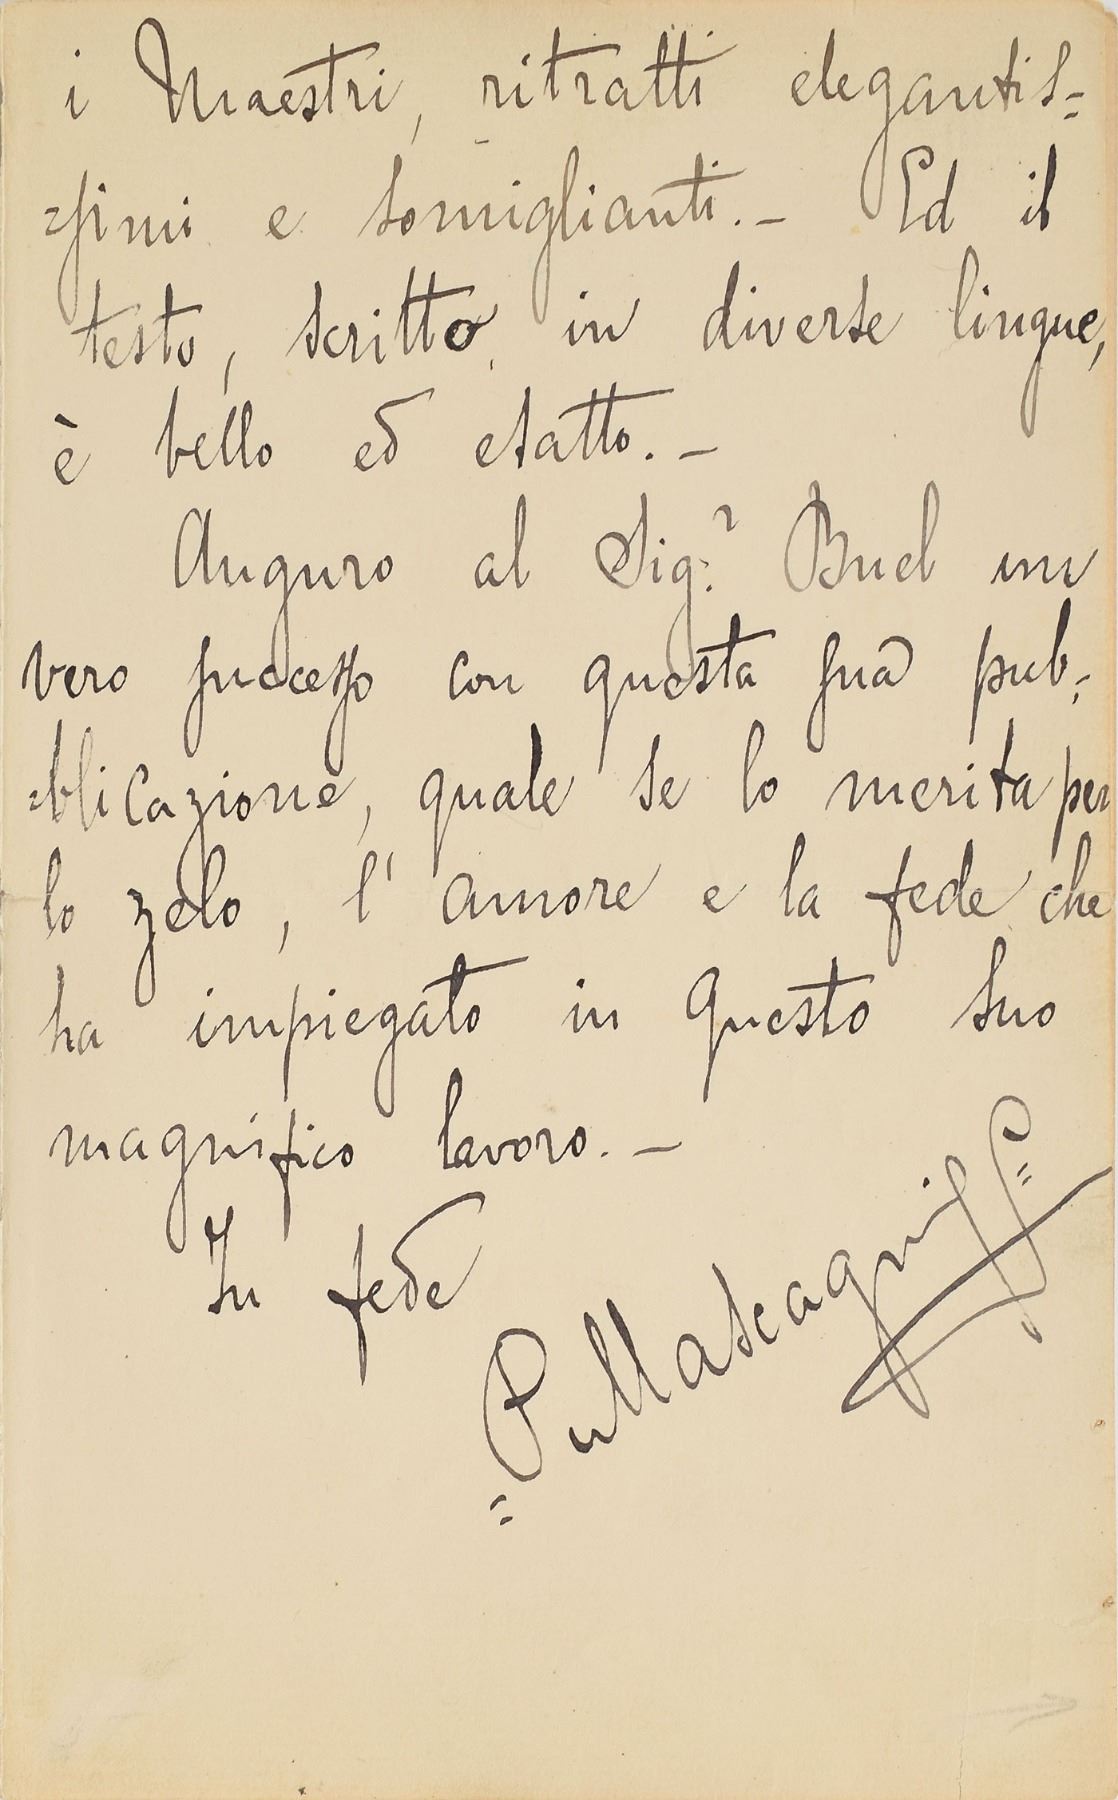 i Maestri, ritratti elegantis=
=simi e somiglianti. – Ed il
testo, scritto in diverse lingue,
è bello ed esatto. –
Auguro al Sig.r Buel un
vero successo con questa sua pub=
=blicazione, quale se lo merita per
lo zelo, l'amore e la fede che
ha impiegato in questo suo
magnifico lavoro. –
In fede
=PMascagni=